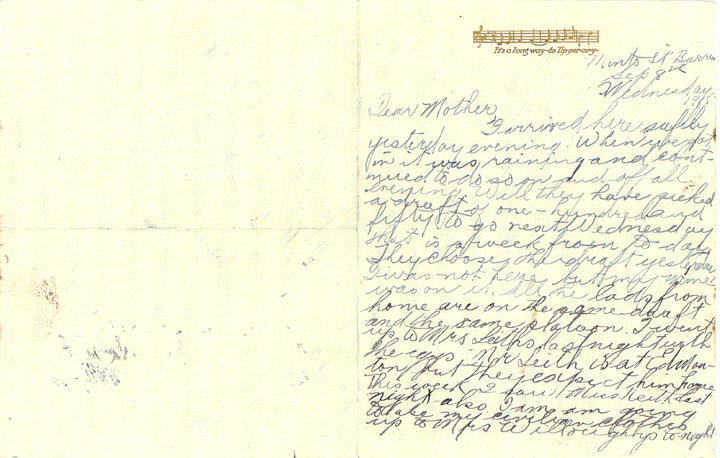 It's a long way to Tipperary
Minto St Barracks
Sep 8th
Wednesday
1915
Dear Mother
I arrived here safely
yesterday evening. When we got
in it was raining and cont-
inued to do so on and off all
evening. Well they have picked
a draft of one-hundred and
fifty to go next Wednesday
that is a week from to-day
They choose the draft yesterday
I was not here but my name
was on it. All the lads from
home are on the same draft
and the same platoon. I went
up to Mrs Leiths last night with
the eggs. Mr Leith is at Edmon-
ton but they expect him home
this week. I saw Miss Leith last
night also. I am am going
to take my civilian clothes
up to Mrs Willoughbys to-night